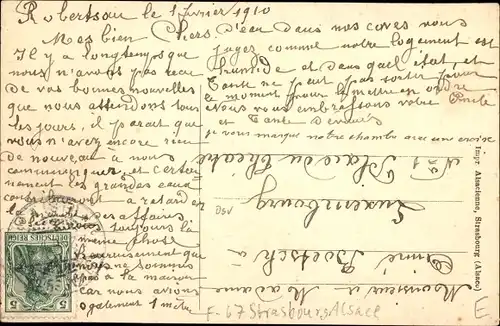 Robertsau le 1 février 1910
Mes bien Chers
Il y a longtemps que
nous n'avons pas recu
de vos bonnes nouvelles
que nous attendons tous
les jours, il parait que
vous n'avez encore rien
de nouveau a nous
communiquer, et certai
nement les grandes eaux
contribueront a retard
les affaires
toujours la
meme chose
heureusement que
nous ne sommes
pas a la maison
car nous avions
egalement 1 metre
d'eau dans nos caves vous
jugez comme notre logement est
humide et dans quel état, et
Tante ne peut pas rester pour
le moment pour le mettre en ordre
nous vous embrassons votre Oncle
et Tante dévoués
je vous marque notre chambre avec une croix
Monsieur et Madame
Aimé Boetsch
Luxembourg
Place du Théâtre
N° 1
DSV
Impr. Alsacienne, Strasbourg (Alsace)
DEUTSCHES REICH
5 5
F-67 Strasbourg, Alsace
E